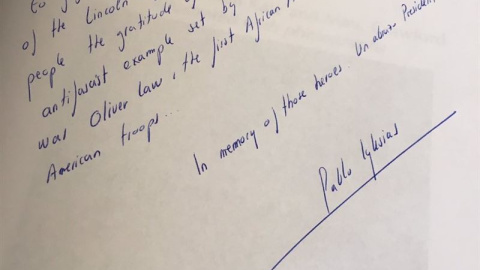 of the Lincoln
people the gratitude
antifascist example set by
was Oliver Law, the first African
American troops...
In memory of those heroes. Un abrazo President
Pablo Iglesias